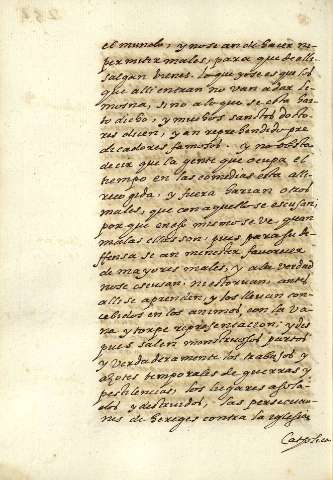 el mundo; y no se an de hacer ni
permitir males, para que de alli
salgan bienes. lo que yo se es que los
que alli entran no van a dar li
mosna, sino a lo que se esta har
to dicho; y muchos santos docto
res dicen, y an reprehendido pre
dicadores famosos. y no obsta
decir que la gente que ocupa el
tiempo en las comedias esta alli
recogida, y fuera harian otros
males, que con aquello se escusan;
por que en eso mismo se ve, quan
malas ellas son: pues para su de
ffensa se an menester favorecer
de mayores males, y a la verdad
no se escusan, ni estorvan, antes
alli se aprenden, y los llevan con
cebidos en los animos, con la va
na y torpe representacion; y des
pues salen monstruosos partos
y verdaderamente los trabajos y
açotes temporales de guerras y
pestilencias, los lugares asola
dos y destruidos, las persecucio
nes de hereges contra la iglesia
Catholica